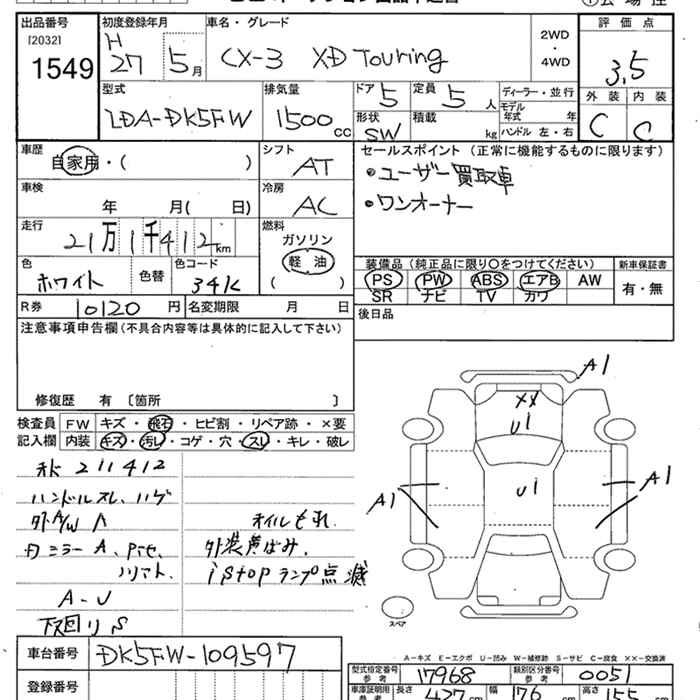 出品番号 初度登録年月 車名・グレード 2WD・4WD 評価点
[2032]
1549 H27 5月 CX-3 XD Touring 3.5
型式 排気量 ドア 定員 ディーラー・並行 外装 内装
LDA-DK5FW 1500cc 5 5人 モデル年式 年 C C
形状 積載 ハンドル 左・右
SW kg
車歴 シフト セールスポイント(正常に機能するものに限ります)
自家用・( ) AT ・ユーザー買取車
車検 冷房 ・ワンオーナー
年 月( 日) AC
走行 燃料
21万1千412km ガソリン
色 色替 色コード 軽油 装備品(純正品に限り○をつけてください) 新車保証書
ホワイト 34K ( ) PS PW ABS エアB AW 有・無
SR ナビ TV カワ
R券 10120円 名変期限 月 日 後日品
注意事項申告欄(不具合内容等は具体的に記入して下さい)
修復歴 有〔箇所 〕
検査員記入欄 FW キズ・飛石・ヒビ割・リペア跡・×要
内装 キズ・汚レ・コゲ・穴・スレ・キレ・破レ
A1
XX
U1
A1 U1 A1
スペア
211412
ハンドルスレ、ハゲ
外A/W オイルもれ
ミラーA、
外装声ばみ、
istopランプ点滅
A-U
下回りS
A-キズ E-エクボ U-凹み W-補修跡 S-サビ C-腐食 XX-交換済
車台番号 DK5FW-109597
型式指定番号 参考 17968 類別区分番号 参考 0051
登録番号
車庫証明用 参考 長さ 427cm 幅 176cm 高さ 155cm